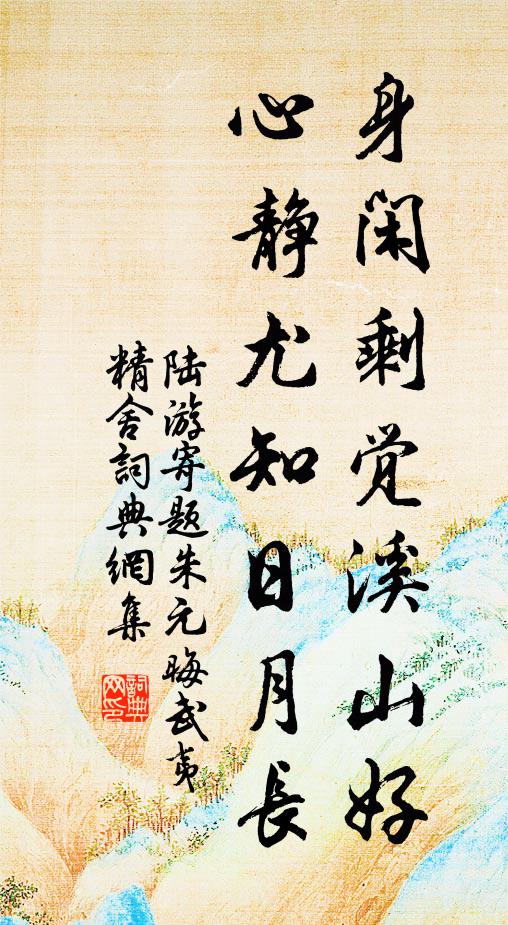 身闲剩觉溪山好
心静尤知日月长
陆游寄题朱元晦武夷
精舍词典網集
词典
网印